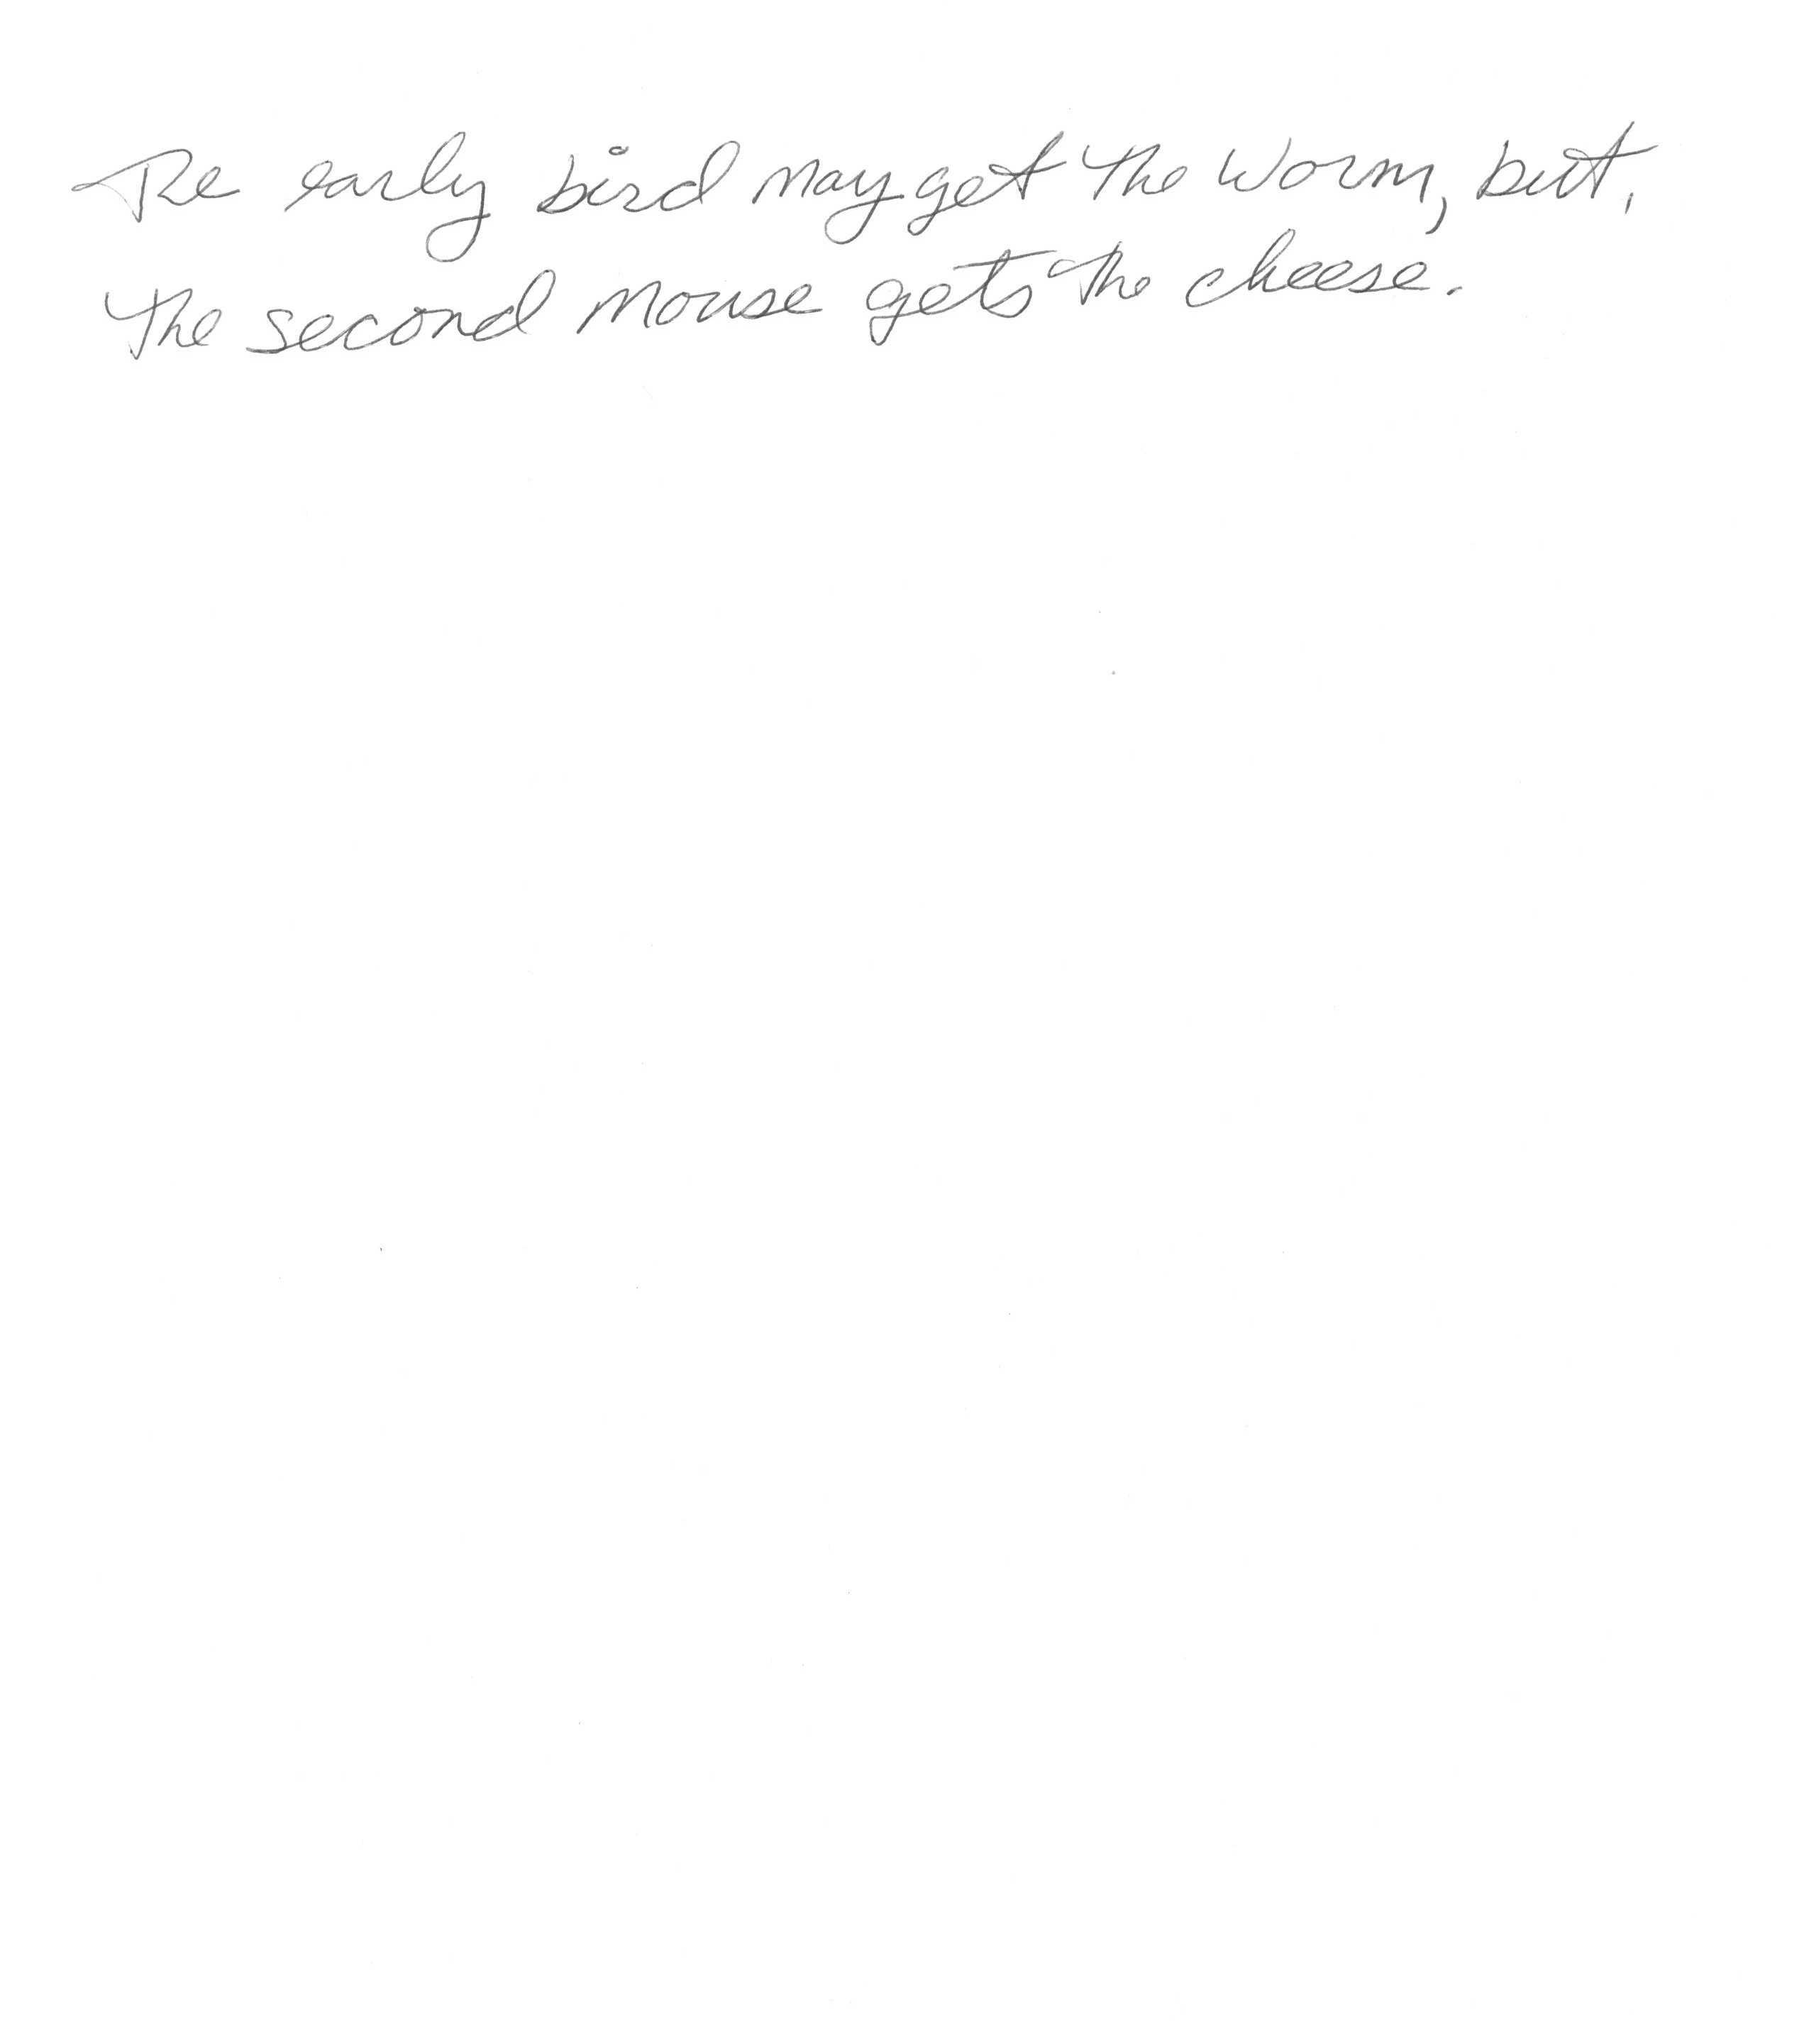 The early bird may get the worm, but,
the second mouse gets the cheese.